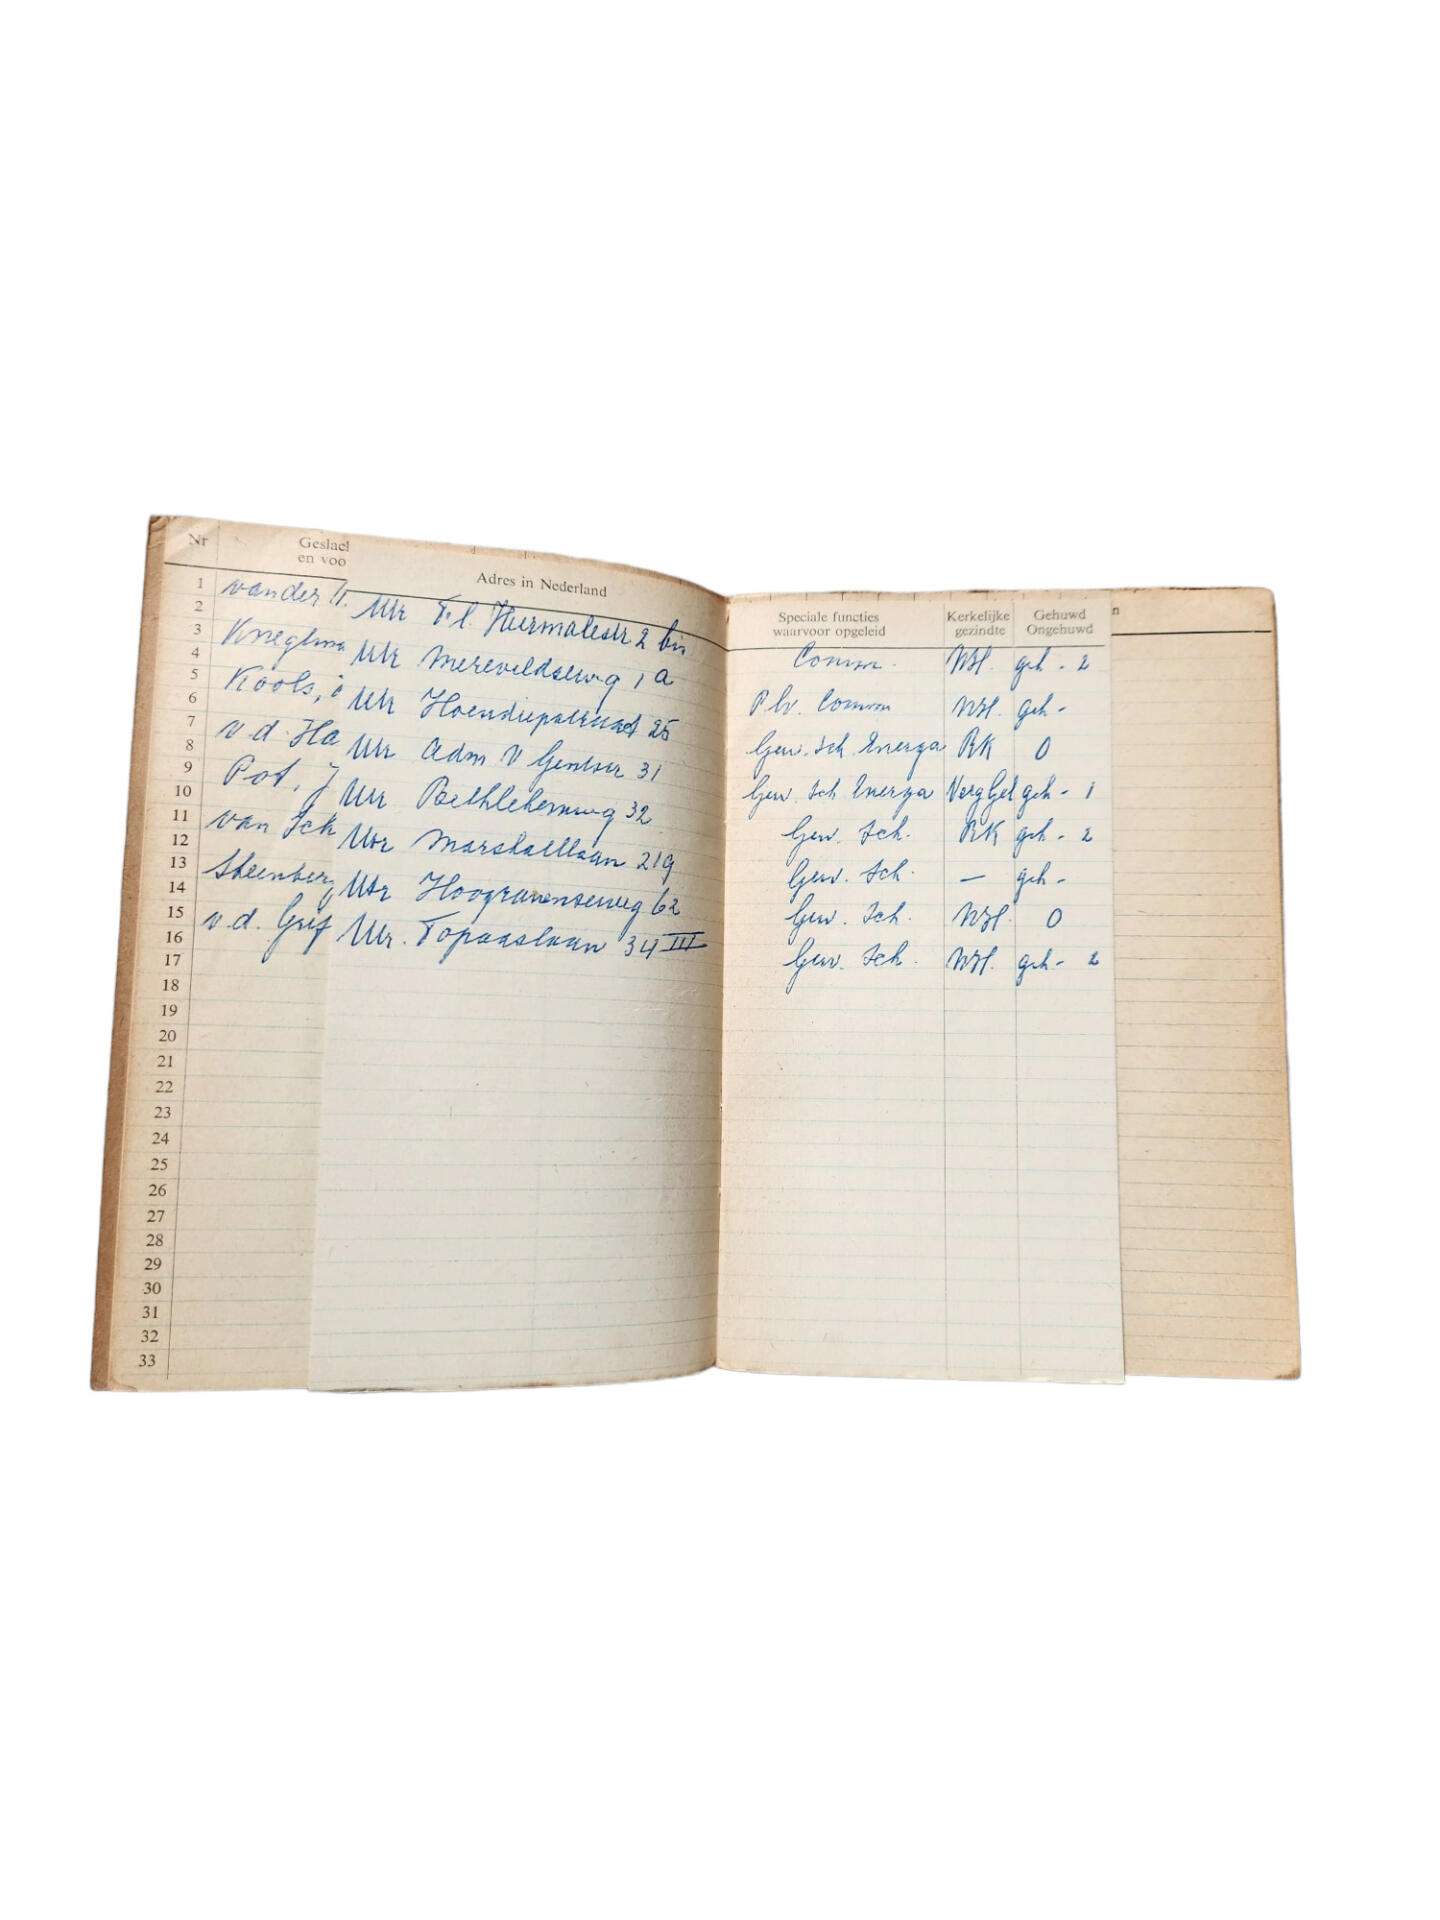 Nr Geslacl
en voo
Adres in Nederland
Speciale functies
waarvoor opgeleid
Kerkelijke
gezindte
Gehuwd
Ongehuwd
n
1 van der
2 Utr 2 bis Comm. NH. geh - 2
3
4 Utr Mereveldseweg 1 a Plv. Comm NH. geh -
5 Kools,
6 Utr Hoendiepstraat 25 Gew. Sch. Energa RK O
7 v. d. Ha
8 Utr Adm V Gentstr 31 Gew. Sch Energa Verg Gel geh - 1
9 Pot, J
10 Utr Bethlehemweg 32 Gew. Sch. RK geh - 2
11 van Sch
12 Utr Marshalllaan 219 Gew. Sch. — geh -
13 Steenberg
14 Utr Hoogravenseweg 62 Gew. Sch. NH. O
15 v. d. Grif
16 Utr. Topaaslaan 34 III Gew. Sch. NH. geh - 2
17
18
19
20
21
22
23
24
25
26
27
28
29
30
31
32
33